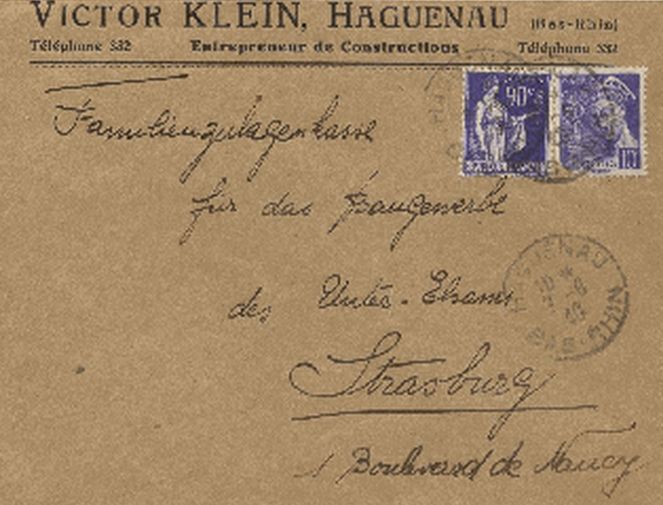 VICTOR KLEIN, HAGUENAU (Bas-Rhin)
Téléphone 332 Entrepreneur de Constructions Téléphone 332
90c
Familienzulagenkasse
für das Baugewerbe
des Unter-Elsass
HAGUENAU
BAS-RHIN
Strasburg
1 Boulevard de Nancy